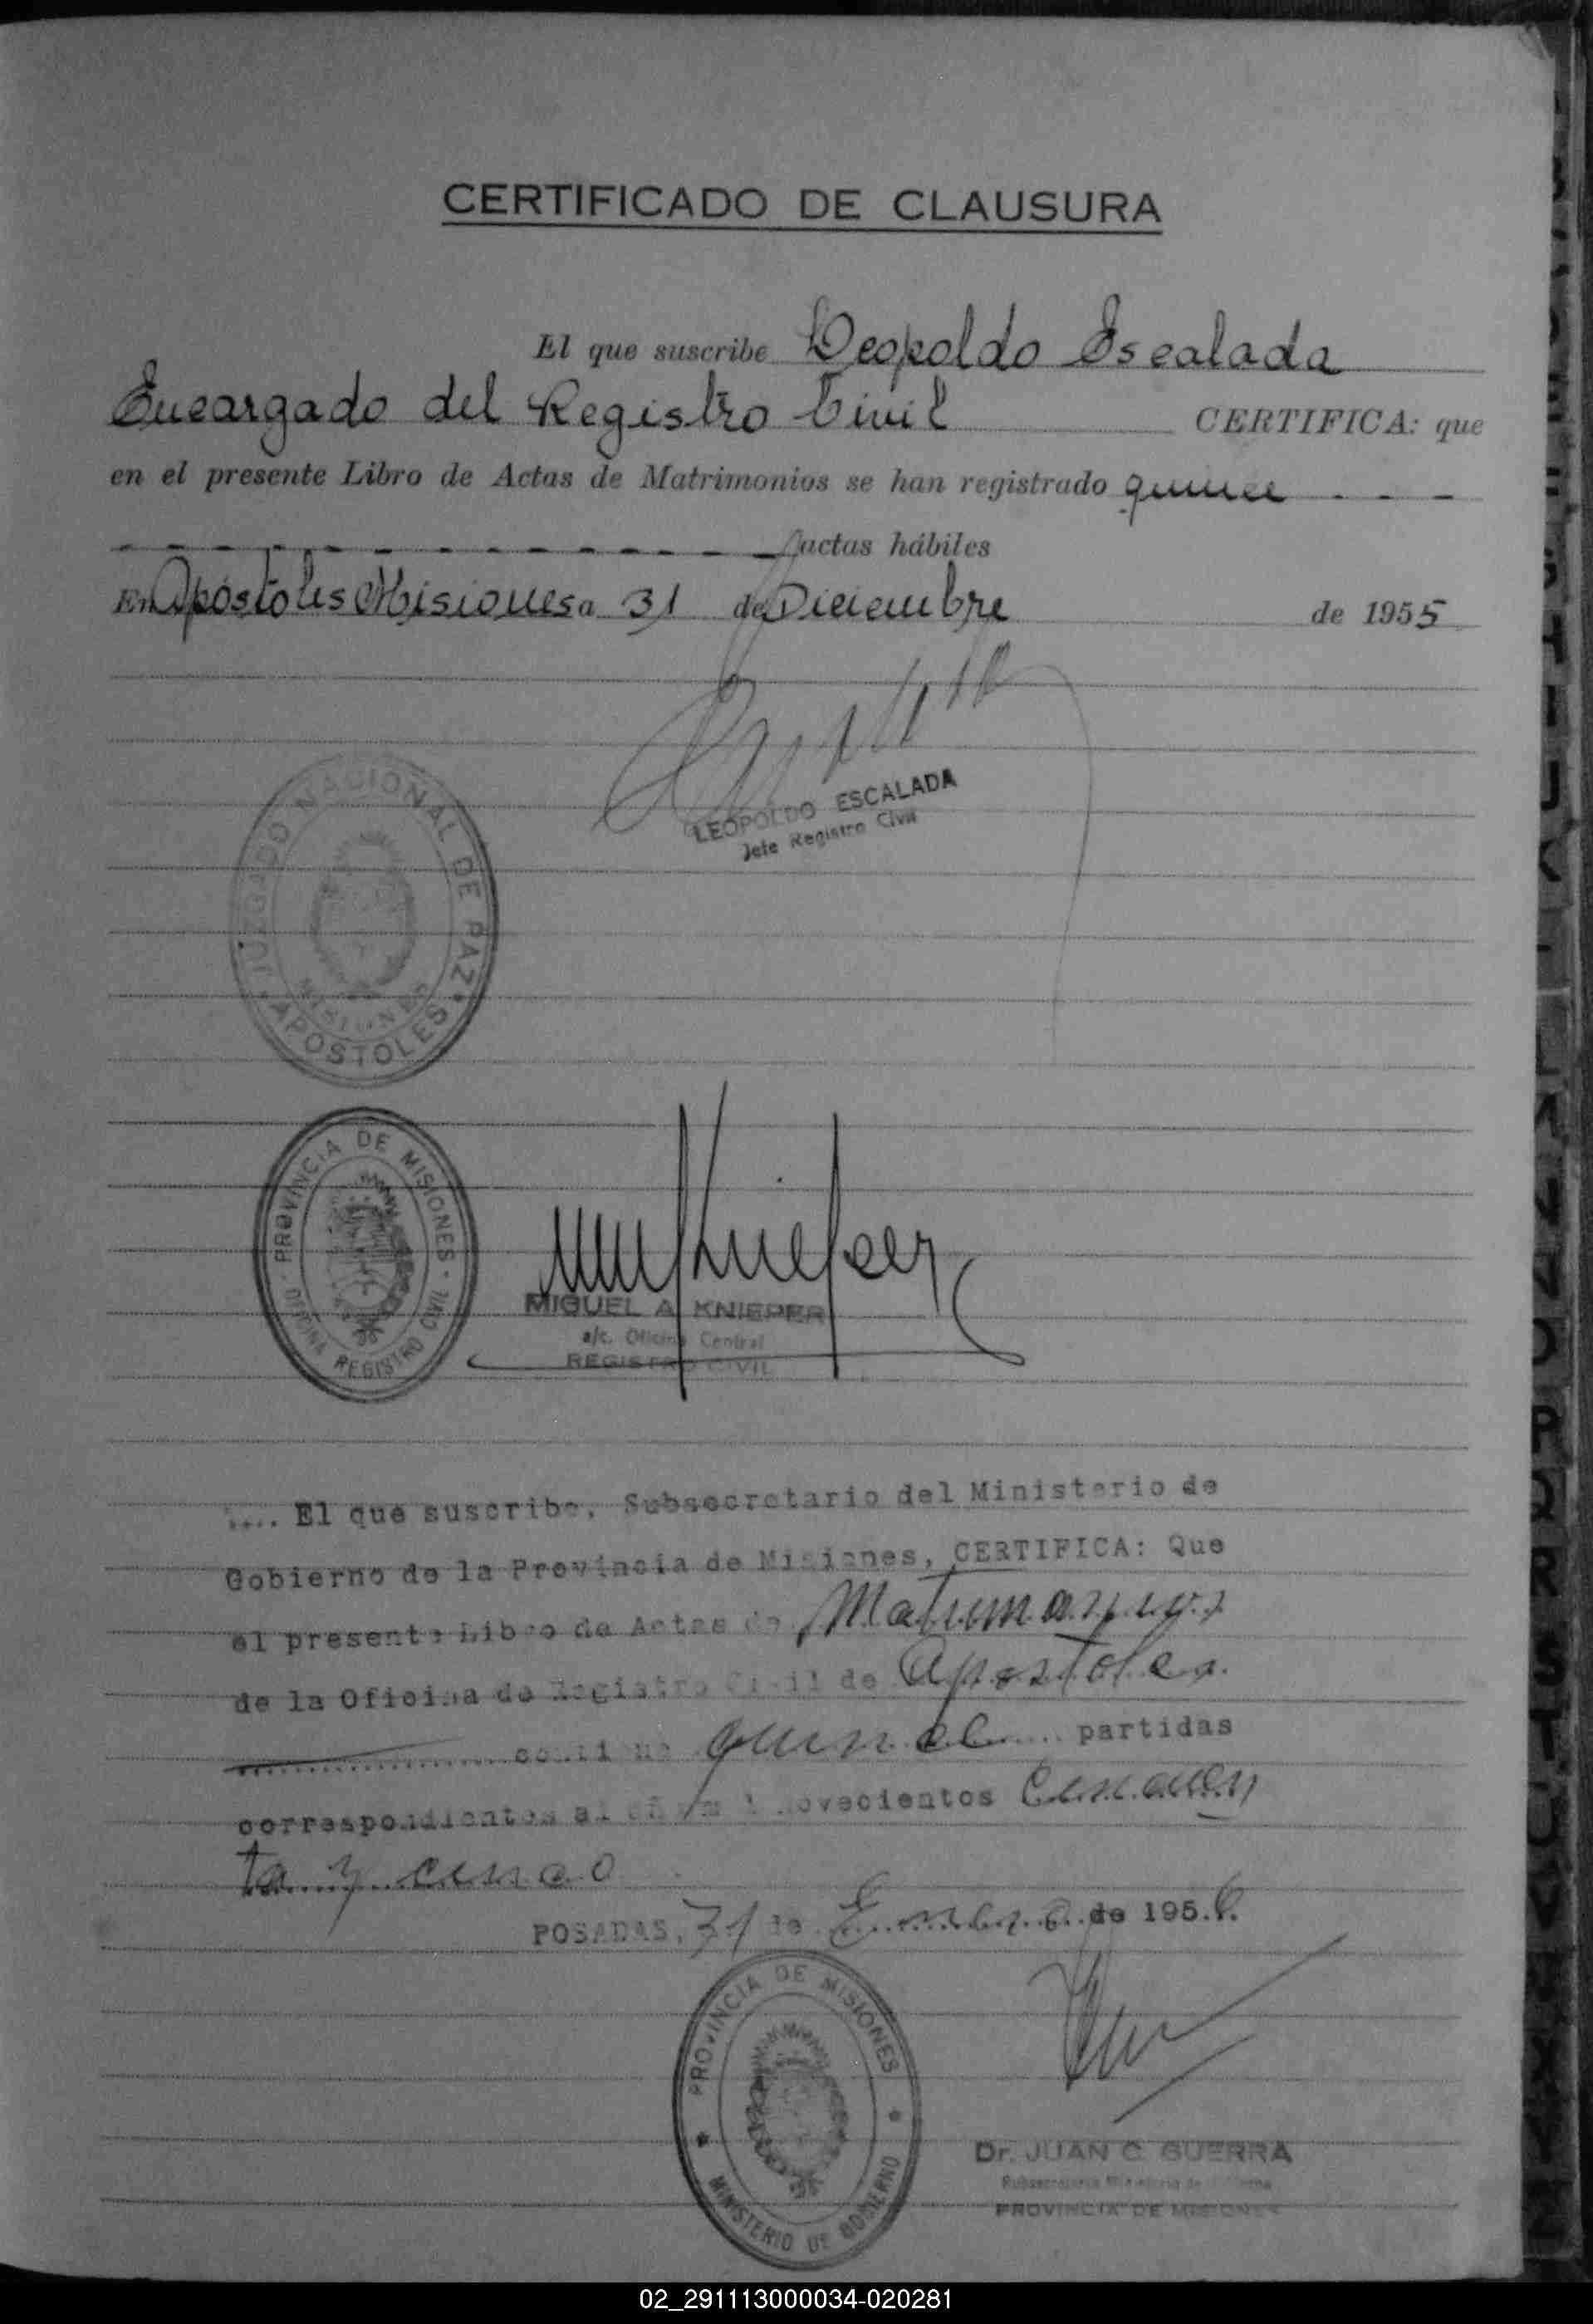 CERTIFICADO DE CLAUSURA
El que suscribe Leopoldo Escalada
Encargado del Registro Civil CERTIFICA: que
en el presente Libro de Actas de Matrimonios se han registrado quince - - -
- - - - - - - - - - - - - - actas hábiles
En Apóstoles Misiones a 31 de Diciembre de 1955
LEOPOLDO ESCALADA
Jefe Registro Civil
JUZGADO NACIONAL DE PAZ
MISIONES
APOSTOLES
PROVINCIA DE MISIONES
OFICINA REGISTRO CIVIL
MIGUEL A. KNIEPER
a/c. Oficina Central
REGISTRO CIVIL
.... El que suscribe, Subsecretario del Ministerio de
Gobierno de la Provincia de Misiones, CERTIFICA: Que
el presente Libro de Actas de Matrimonios
de la Oficina de Registro Civil de Apostoles
contiene quince partidas
correspondientes al año mil novecientos Cincuen
ta y cinco
POSADAS, 31 de Enero de 1956.
PROVINCIA DE MISIONES
MINISTERIO DE GOBIERNO
Dr. JUAN C. GUERRA
Subsecretario Ministerio de Gobierno
PROVINCIA DE MISIONES
02_291113000034-020281